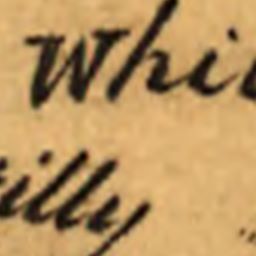 Whi
illy